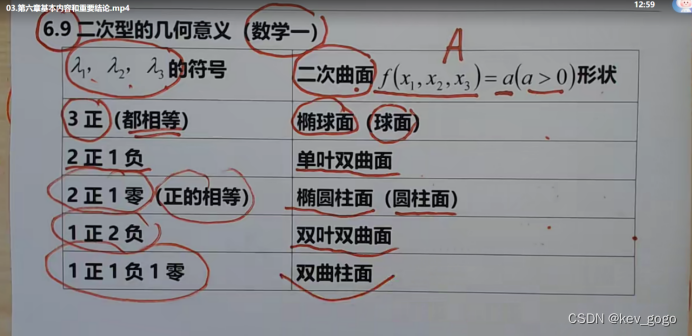 03.第六章基本内容和重要结论.mp4
12:59
6.9 二次型的几何意义（数学一）
A
λ₁，λ₂，λ₃的符号 二次曲面 f(x₁,x₂,x₃)=a(a>0)形状
3 正（都相等） 椭球面（球面）
2 正 1 负 单叶双曲面
2 正 1 零（正的相等） 椭圆柱面（圆柱面）
1 正 2 负 双叶双曲面
1 正 1 负 1 零 双曲柱面
CSDN @kev_gogo